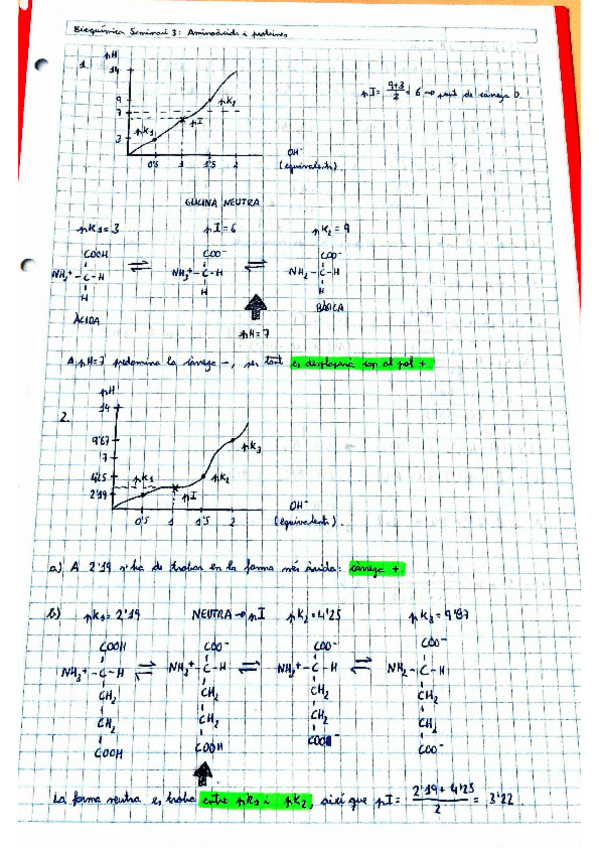 Bioquímica Seminari 3: Aminoàcids i proteïnes
1.
pH
14
9
7
3
pK1
pI
pK2
0'5 1 1'5 2
OH-
(equivalents)
pI = 9+3/2 = 6 → punt de càrrega 0.
GLICINA NEUTRA
pK1=3 pI=6 pK2=9
COOH ⇌ COO- ⇌ COO-
NH3+-C-H NH3+-C-H NH2-C-H
H H H
ÀCIDA BÀSICA
pH=7
A pH=7 predomina la càrrega -, per tant es desplaçarà cap al pol +
2.
pH
14
9'67
7
4'25
2'19
pK1
pI
pK2
pK3
0'5 1 1'5 2
OH-
(equivalents).
a) A 2'19 s'ha de trobar en la forma més àcida: càrrega +
b) pK1=2'19 NEUTRA→pI pK2=4'25 pK3=9'67
COOH COO- COO- COO-
NH3+-C-H ⇌ NH3+-C-H ⇌ NH3+-C-H ⇌ NH2-C-H
CH2 CH2 CH2 CH2
CH2 CH2 CH2 CH2
COOH COOH COO- COO-
La forma neutra es troba entre pK1 i pK2, així que pI = 2'19+4'25/2 = 3'22